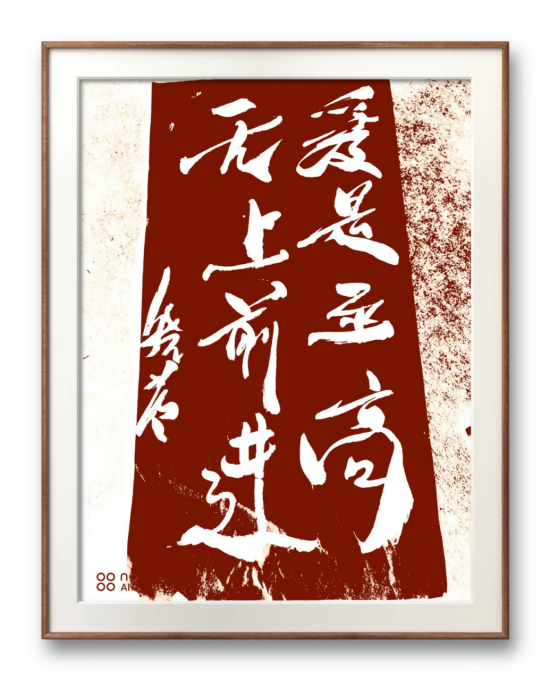 爱是至高
无上前进